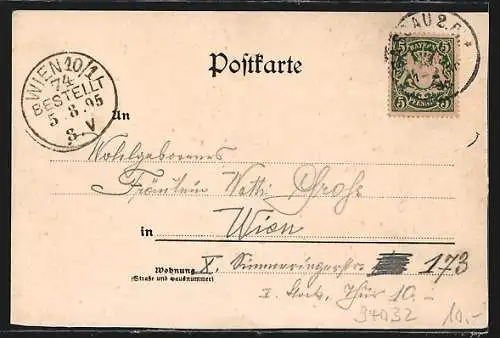 WIEN 10/1
74
BESTELLT
5. 8. 95
3-V
Postkarte
BAYERN
5 5
5 PFENNIG 5
AU 2.B.
An
Wohlgeborenes
Fräulein Netti Grohs
in Wien
Wohnung X. Simmeringerstr. 173
(Straße und Hausnummer)
I. Stock, Thür 10.-
34032 10.-